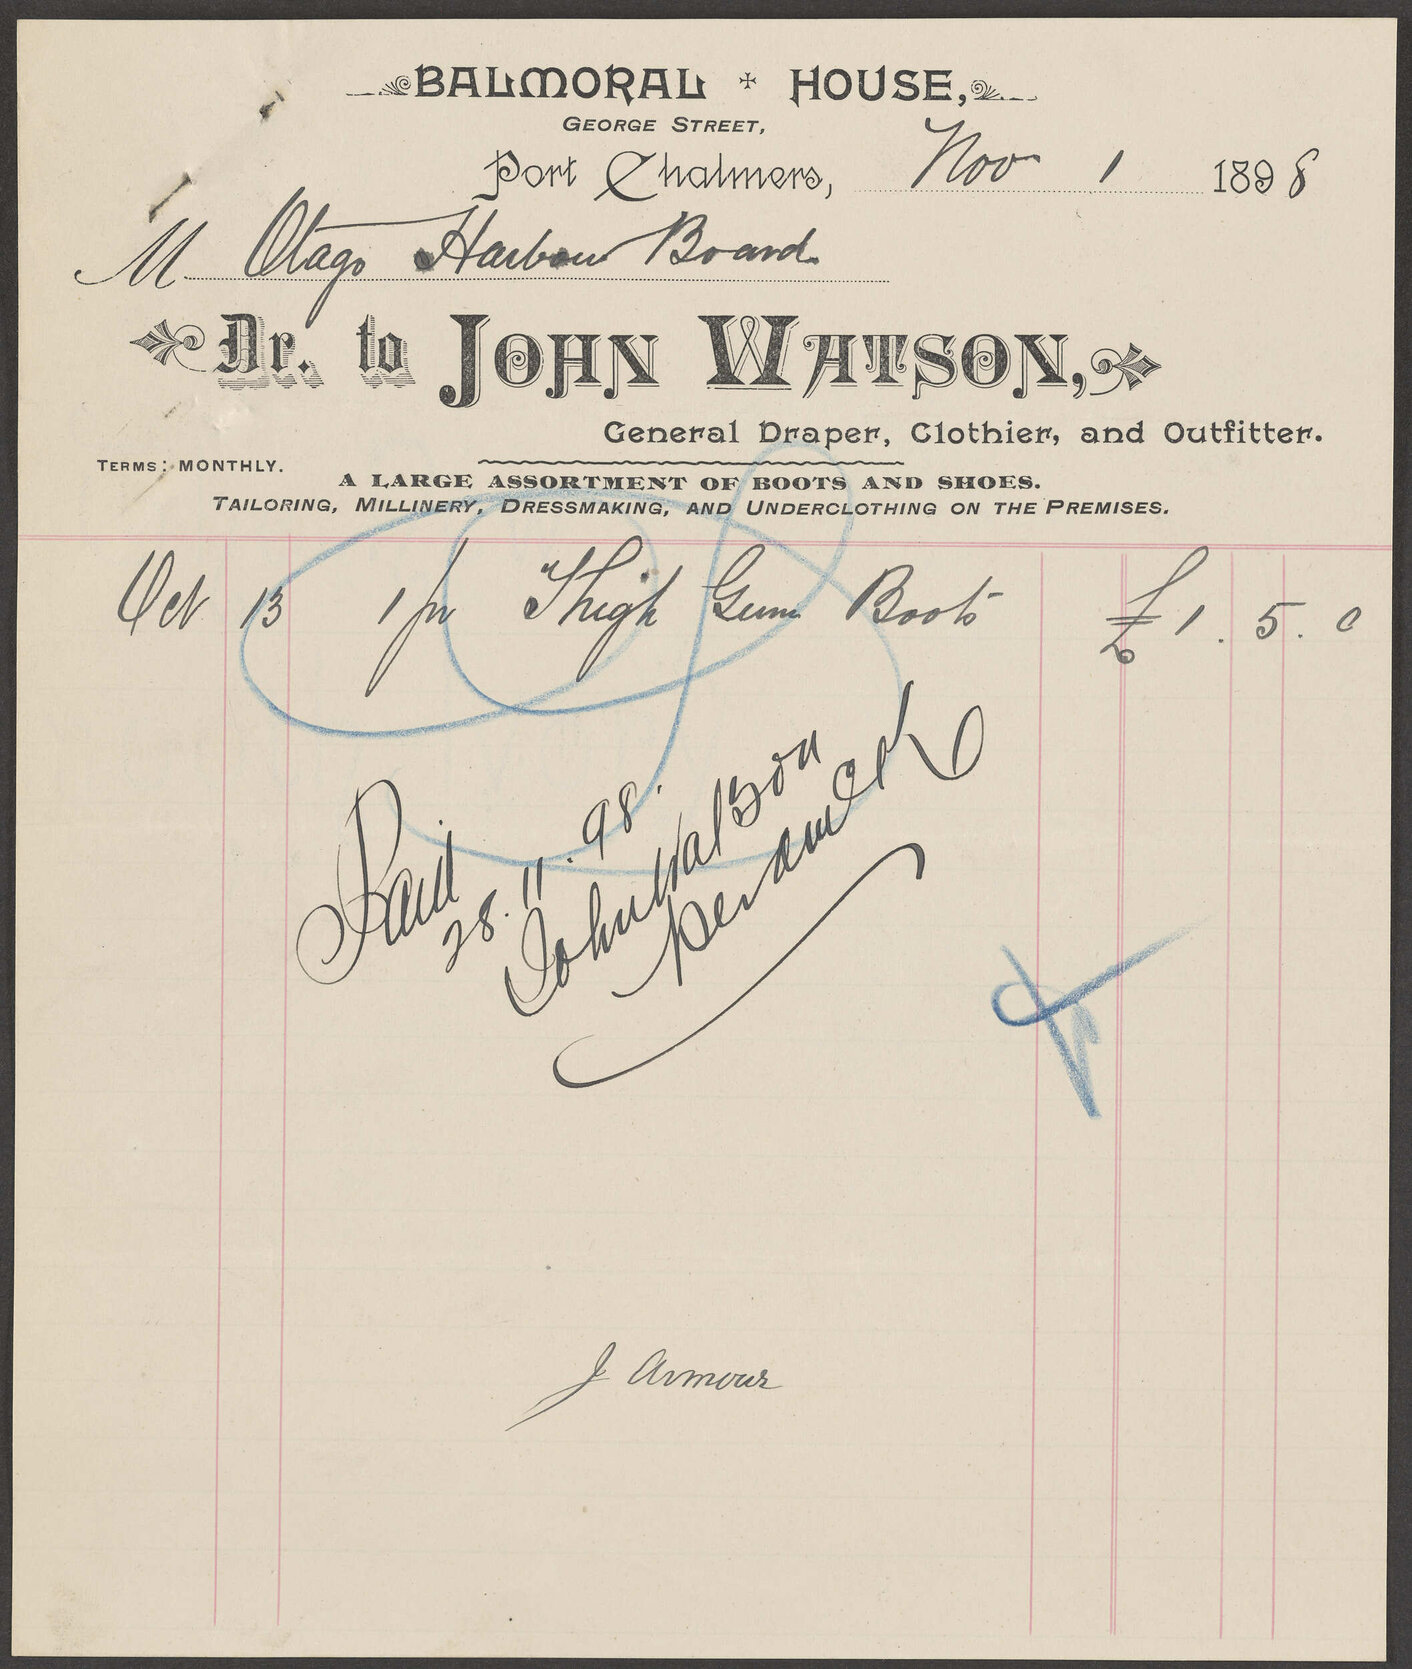 BALMORAL HOUSE,
GEORGE STREET,
Port Chalmers, Nov 1 1898
M Otago Harbour Board
Dr. to JOHN WATSON,
General Draper, Clothier, and Outfitter.
TERMS: MONTHLY.
A LARGE ASSORTMENT OF BOOTS AND SHOES.
TAILORING, MILLINERY, DRESSMAKING, AND UNDERCLOTHING ON THE PREMISES.
Oct 13 1 pr Thigh Gum Boots £1. 5. 0
Paid
28. 11. 98.
John Watson
per
J Armour